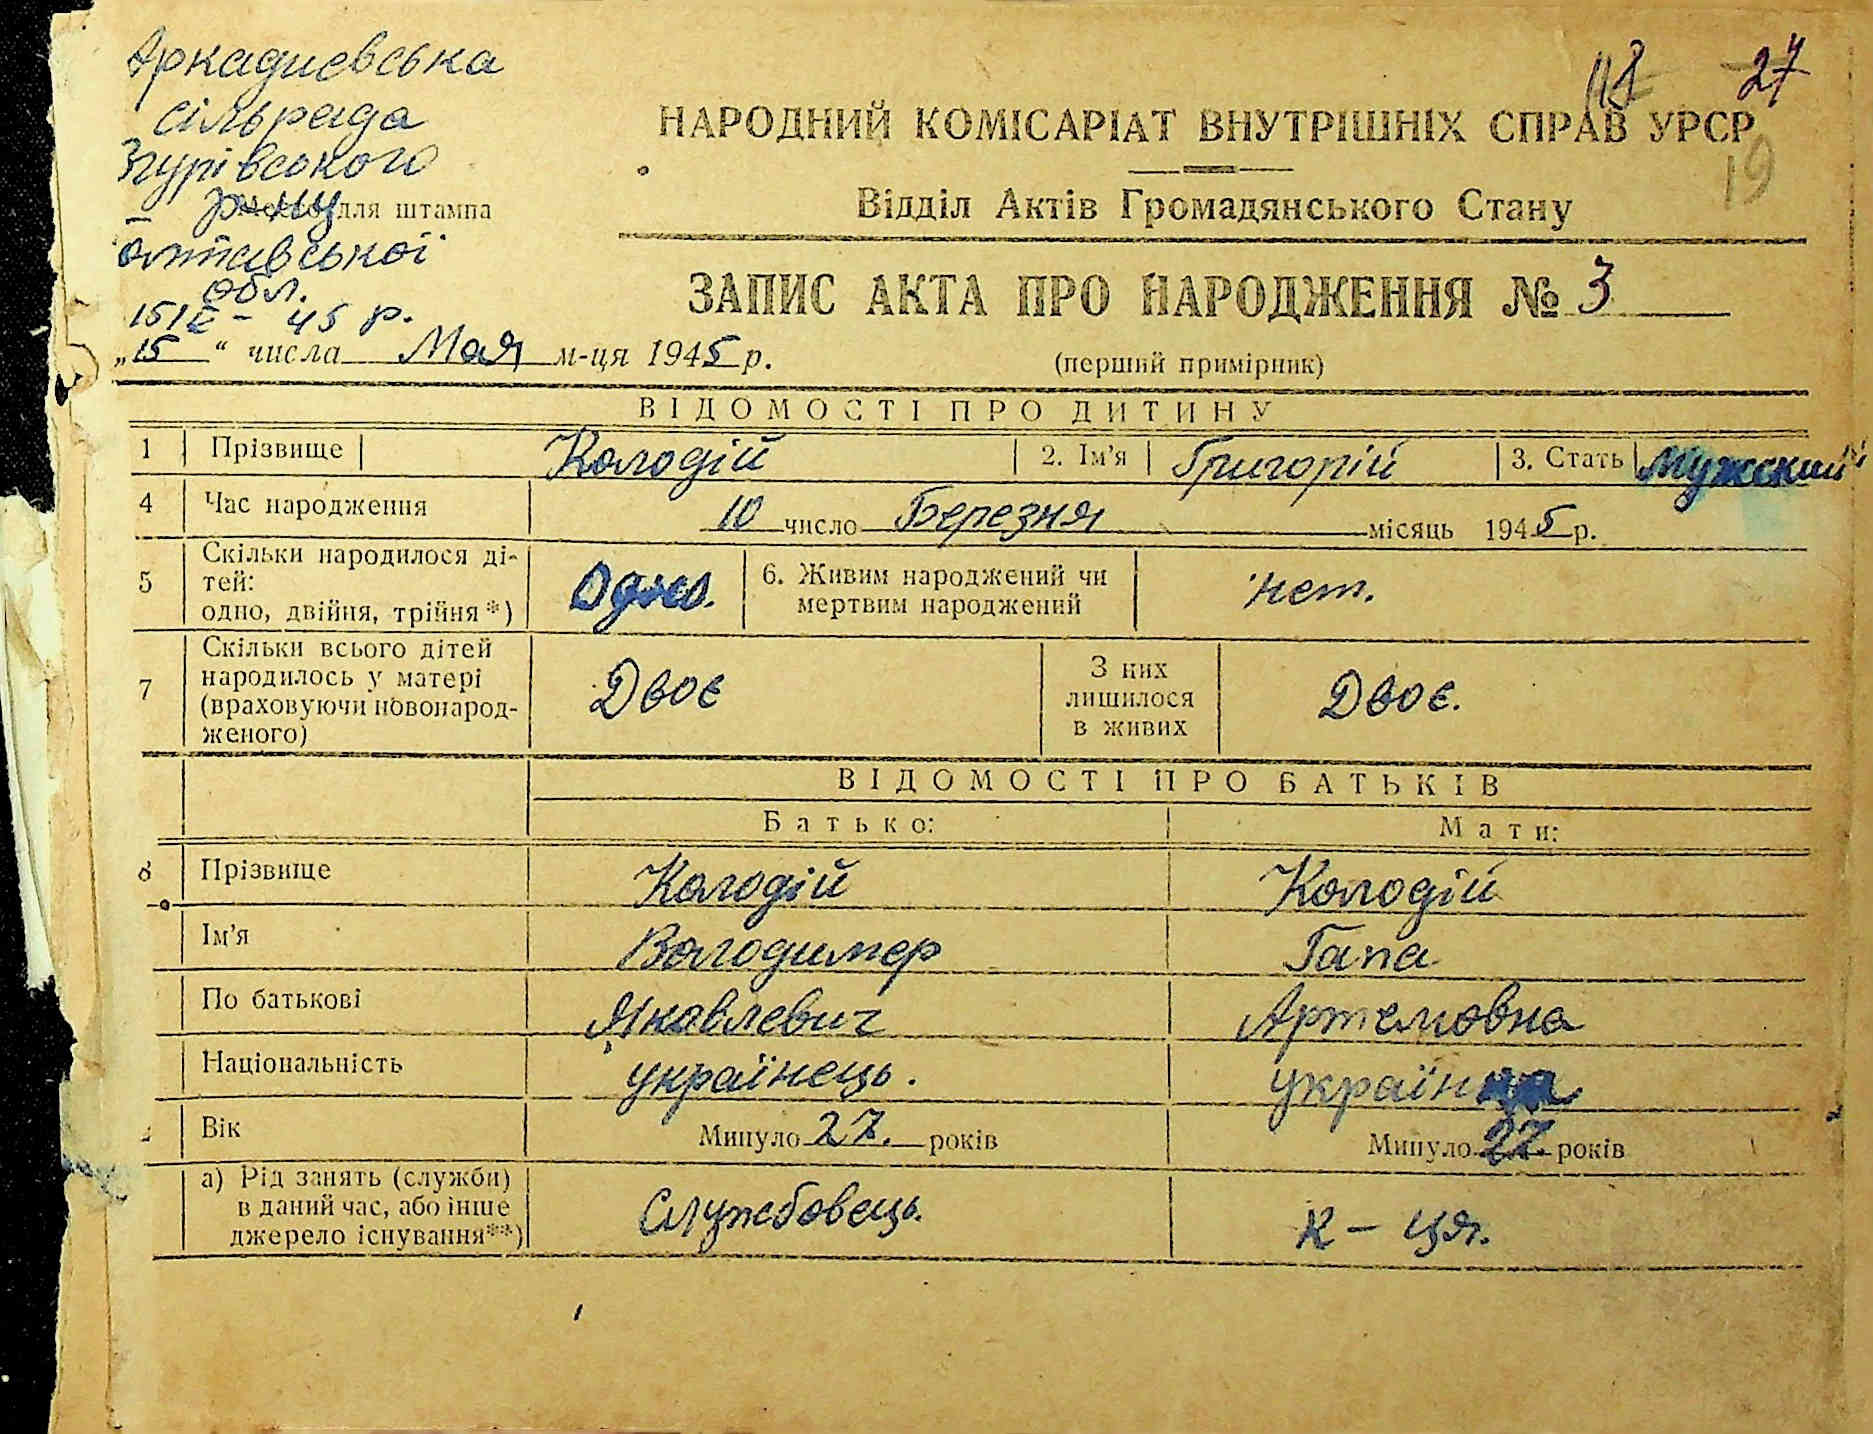 Аркадиевська
сільрада
Згурівського
р-ну для штампа
олтавської
обл.
15/Е - 45 р.
"15" числа Мая м-ця 1945 р.
118 27
19
НАРОДНИЙ КОМІСАРІАТ ВНУТРІШНІХ СПРАВ УРСР
Відділ Актів Громадянського Стану
ЗАПИС АКТА ПРО НАРОДЖЕННЯ № 3
(перший примірник)
ВІДОМОСТІ ПРО ДИТИНУ
1 Прізвище Колодій 2. Ім'я Григорій 3. Стать Мужский
4 Час народження 10 число Березня місяць 1945 р.
5 Скільки народилося ді-
тей:
одно, двійня, трійня*) Одно. 6. Живим народжений чи
мертвим народжений нет.
7 Скільки всього дітей
народилось у матері
(враховуючи новонарод-
женого) Двоє З них
лишилося
в живих Двоє.
ВІДОМОСТІ ПРО БАТЬКІВ
Батько: Мати:
8 Прізвище Колодій Колодій
Ім'я Володимер Гапа
По батькові Яковлевич Артемовна
Національність українець. українка
Вік Минуло 27. років Минуло 27. років
а) Рід занять (служби)
в даний час, або інше
джерело існування**) Служебовець. к - ця.